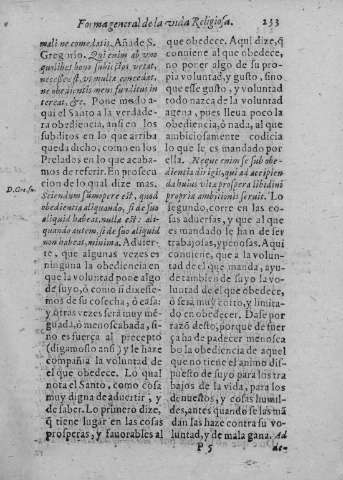 Forma general de la vida Religiosa. 233
mali ne comedatis. Añade S.
Gregorio. Qui enim ab vno
quolibet bono subiectos vetat,
necesse est, vt multa concedat,
ne obedientis mens funditus in
tereat, &c. Pone modo a-
qui el Santo a la verdade-
ra obediencia, ansi en los
subditos en lo que arriba
queda dicho, como en los
Prelados en lo que acaba-
mos de referir. En prosecu
cion de lo qual dize mas.
D. Gre. su.
Sciendum sũmopere est, quod
obedientia aliquando, si de suo
aliquid habeat, nulla est: ali-
quando autem, si de suo aliquid
non habeat, minima. Aduier-
te, que algunas vezes es
ninguna la obediencia en
que la voluntad pone algo
de suyo, ó como si dixesse-
mos de su cosecha, ó casa:
y otras vezes será muy mẽ-
guada, ó menoscabada, si-
no es fuerça al precepto
(digamoslo ansi) y le haze
compañia la voluntad de
el que obedece. Lo qual
nota el Santo, como cosa
muy digna de aduertir, y
de saber. Lo primero dize,
q̃ tiene lugar en las cosas
prosperas, y fauorables al
que obedece. Aqui dize, q̃
conuiene al que obedece,
no poner algo de su pro-
pia voluntad, y gusto, sino
que esse gusto, y voluntad
todo nazca de la voluntad
agena, pues lleua poco la
obediencia, ó nada, al que
ambiciosamente codicia
lo que le es mandado por
ella. Neque enim se sub obe-
diencia dirigit, qui ad accipien
da huius vita prospera libidini
propria ambitionis seruit. Lo
segundo, corre en las co-
sas aduersas, y que al que
es mandado le han de ser
trabajosas, y penosas. Aqui
conuiene, que a la volun-
tad de el que manda, ayu-
de tambien de suyo la vo-
luntad de el que obedece,
ó será muy corto, y limita-
do en obedecer. Dase por
razõ desto, porque de fuer
ça ha de padecer menosca
bo la obediencia de aquel
que no tiene el animo dis-
puesto de suyo para los tra
bajos de la vida, para los
denuestos, y cosas humil-
des, antes quando se las mã
dan las haze contra su vo-
luntad, y de mala gana. Ad
P 5 de-